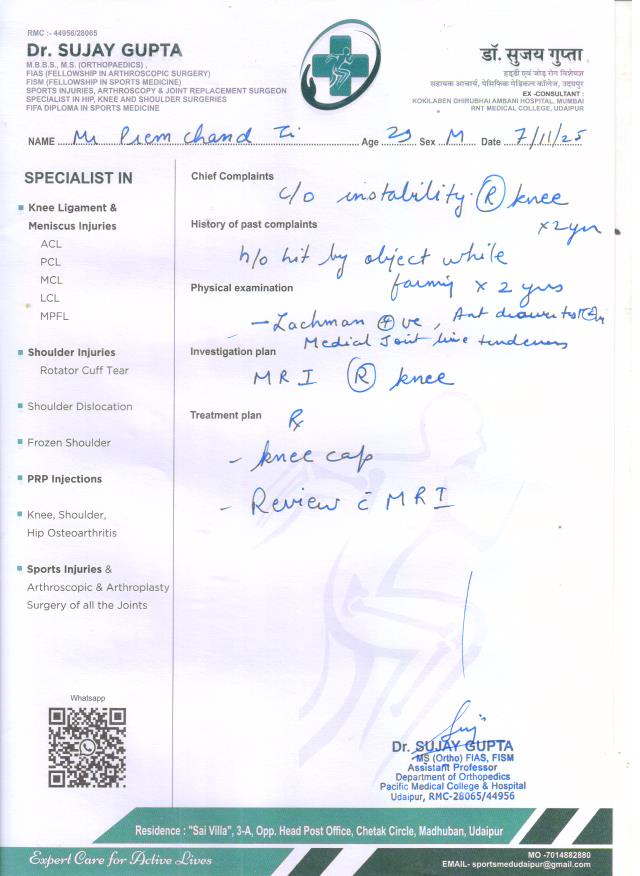 RMC :- 44956/28065
Dr. SUJAY GUPTA
M.B.B.S., M.S. (ORTHOPAEDICS) ,
FIAS (FELLOWSHIP IN ARTHROSCOPIC SURGERY)
FISM (FELLOWSHIP IN SPORTS MEDICINE)
SPORTS INJURIES, ARTHROSCOPY & JOINT REPLACEMENT SURGEON
SPECIALIST IN HIP, KNEE AND SHOULDER SURGERIES
FIFA DIPLOMA IN SPORTS MEDICINE
डॉ. सुजय गुप्ता
हड्डी एवं जोड़ रोग विशेषज्ञ
सहायक आचार्य, पेसिफिक मेडिकल कॉलेज, उदयपुर
EX -CONSULTANT :
KOKILABEN DHIRUBHAI AMBANI HOSPITAL, MUMBAI
RNT MEDICAL COLLEGE, UDAIPUR
NAME Mr Prem Chand Ji Age 29 Sex M Date 7/11/25
SPECIALIST IN
Knee Ligament &
Meniscus Injuries
ACL
PCL
MCL
LCL
MPFL
Shoulder Injuries
Rotator Cuff Tear
Shoulder Dislocation
Frozen Shoulder
PRP Injections
Knee, Shoulder,
Hip Osteoarthritis
Sports Injuries &
Arthroscopic & Arthroplasty
Surgery of all the Joints
Whatsapp
Chief Complaints
c/o instability (R) knee
x 2 yrs
History of past complaints
h/o hit by object while
farming x 2 yrs
Physical examination
- Lachman +ve, Ant drawer test
Medial Joint line tenderness
Investigation plan
MRI (R) knee
Treatment plan
Rx
- knee cap
- Review c̄ MRI
Dr. SUJAY GUPTA
MS (Ortho) FIAS, FISM
Assistant Professor
Department of Orthopedics
Pacific Medical College & Hospital
Udaipur, RMC-28065/44956
Residence : "Sai Villa", 3-A, Opp. Head Post Office, Chetak Circle, Madhuban, Udaipur
Expert Care for Active Lives
MO -7014882880
EMAIL- sportsmedudaipur@gmail.com